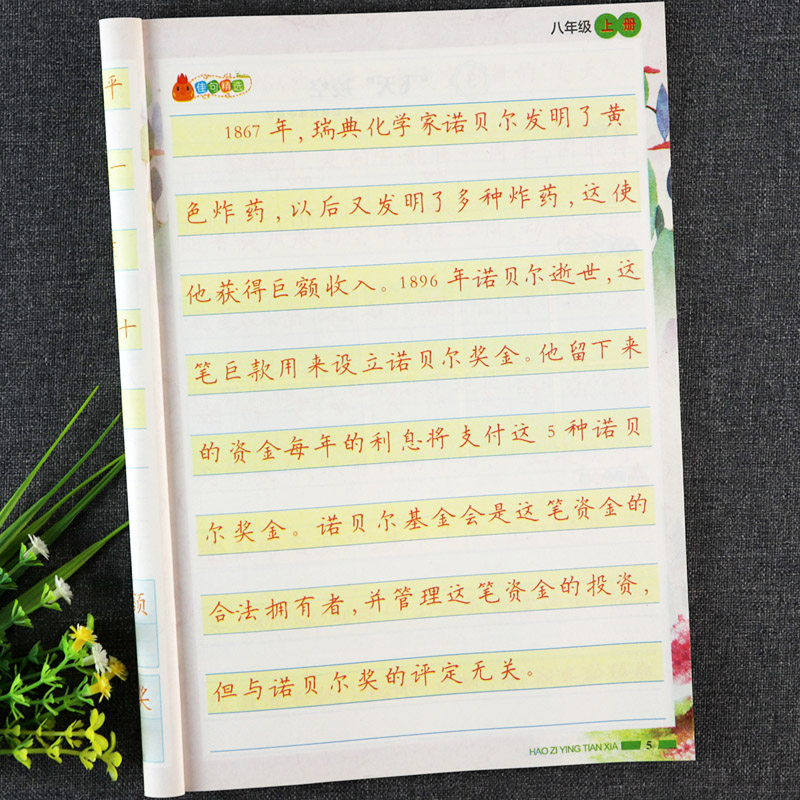 八年级 上 册
佳句精选
1867 年，瑞典化学家诺贝尔发明了黄
色炸药，以后又发明了多种炸药，这使
他获得巨额收入。1896 年诺贝尔逝世，这
笔巨款用来设立诺贝尔奖金。他留下来
的资金每年的利息将支付这 5 种诺贝
尔奖金。诺贝尔基金会是这笔资金的
合法拥有者，并管理这笔资金的投资，
但与诺贝尔奖的评定无关。
HAO ZI YING TIAN XIA 5
平
一
十
奖